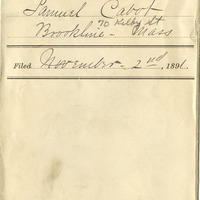 Samuel Cabot
70 Kilby St
Brookline - Mass
Filed November - 2nd, 1891.